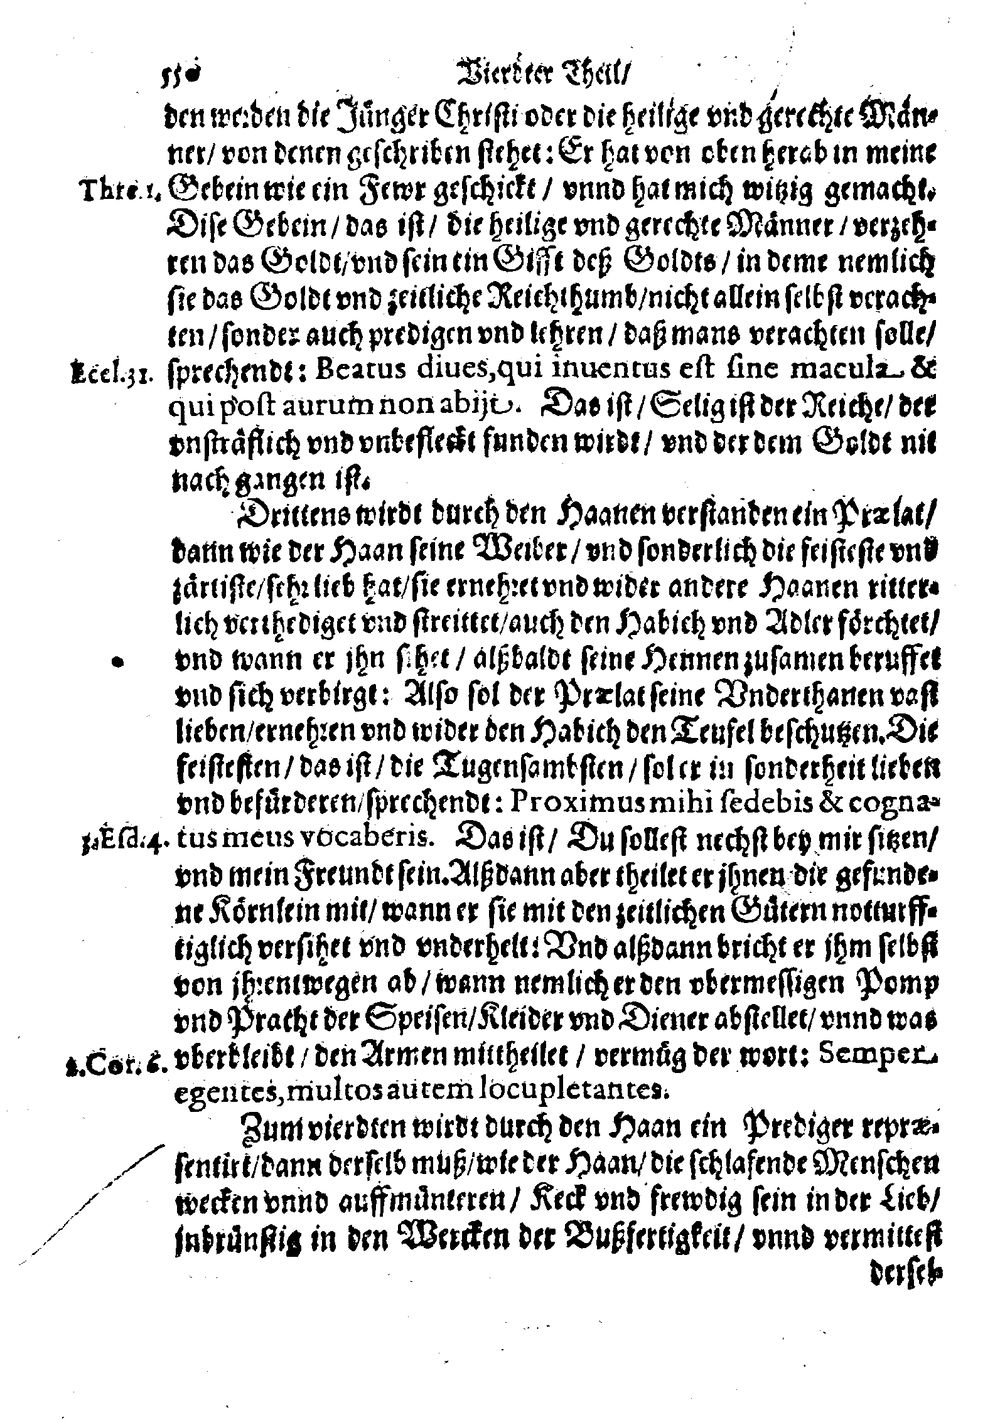 550 Vierdter Theil/
den werden die Jünger Christi oder die heilige vnd gerechte Män-
ner/ von denen geschriben stehet: Er hat von oben herab in meine
Thre. 1. Gebein wie ein Fewr geschickt / vnnd hat mich witzig gemacht.
Dise Gebein / das ist / die heilige vnd gerechte Männer / verzeh-
ren das Goldt/vnd sein ein Gifft deß Goldts / in deme nemlich
sie das Goldt vnd zeitliche Reichthumb/nicht allein selbst verach-
ten / sonder auch predigen vnd lehren / daß mans verachten solle/
Eccl. 31. sprechendt: Beatus diues, qui inuentus est sine macula &
qui post aurum non abijt. Das ist / Selig ist der Reiche/ der
vnsträflich vnd vnbefleckt funden wirdt/ vnd der dem Goldt nit
nach gangen ist.
Drittens wirdt durch den Haanen verstanden ein Prælat/
dann wie der Haan seine Weiber / vnd sonderlich die feisteste vnd
zärtiste/sehr lieb hat/sie ernehret vnd wider andere Haanen ritter-
lich verthediget vnd streittet/auch den Habich vnd Adler förchtet/
vnd wann er jhn sihet / alßbaldt seine Hennen zusamen beruffet
vnd sich verbirgt: Also sol der Prælat seine Vnderthanen vast
lieben/ernehren vnd wider den Habich den Teufel beschutzen. Die
feistesten / das ist / die Tugensambsten / sol er in sonderheit lieben
vnd befürderen/sprechendt: Proximus mihi sedebis & cogna-
3. Esd. 4. tus meus vocaberis. Das ist/ Du sollest nechst bey mir sitzen/
vnd mein Freundt sein. Alßdann aber theilet er jhnen die gefunde-
ne Körnlein mit/ wann er sie mit den zeitlichen Gütern notturff-
tiglich versihet vnd vnderhelt: Vnd alßdann bricht er jhm selbst
von jhrentwegen ab / wann nemlich er den vbermessigen Pomp
vnd Pracht der Speisen/Kleider vnd Diener abstellet/ vnnd was
2. Cor. 6. vberbleibt / den Armen mittheilet / vermüg der wort: Semper
egentes, multos autem locupletantes.
Zum vierdten wirdt durch den Haan ein Prediger repræ-
sentirt/dann derselb muß/wie der Haan/die schlafende Menschen
wecken vnnd auffmünteren / Keck vnd frewdig sein in der Lieb/
jnbrünstig in den Wercken der Bußfertigkeit/ vnnd vermittest
dersel-